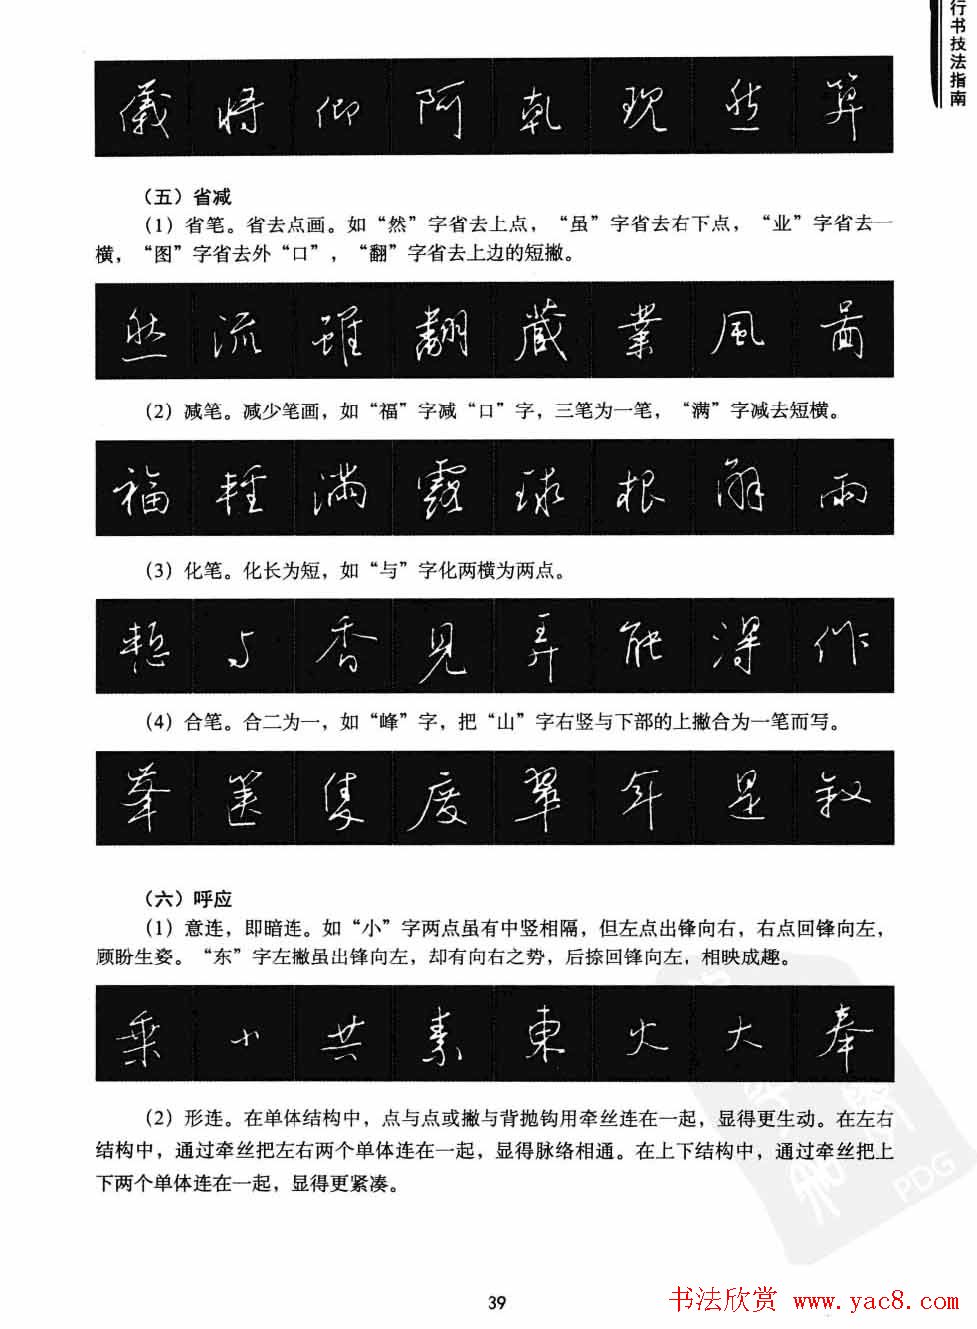 行书技法指南
儀 将 仰 阿 乾 现 然 算
（五）省减
（1）省笔。省去点画。如“然”字省去上点，“虽”字省去右下点，“业”字省去一
横，“图”字省去外“口”，“翻”字省去上边的短撇。
然 流 雖 翻 藏 業 風 啚
（2）减笔。减少笔画，如“福”字减“口”字，三笔为一笔，“满”字减去短横。
福 輕 满 露 球 根 解 雨
（3）化笔。化长为短，如“与”字化两横为两点。
与 香 見 弄 能 得 作
（4）合笔。合二为一，如“峰”字，把“山”字右竖与下部的上撇合为一笔而写。
峯 隻 度 翠 年 是 叙
（六）呼应
（1）意连，即暗连。如“小”字两点虽有中竖相隔，但左点出锋向右，右点回锋向左，
顾盼生姿。“东”字左撇虽出锋向左，却有向右之势，后捺回锋向左，相映成趣。
乘 小 共 素 東 火 大 奉
（2）形连。在单体结构中，点与点或撇与背抛钩用牵丝连在一起，显得更生动。在左右
结构中，通过牵丝把左右两个单体连在一起，显得脉络相通。在上下结构中，通过牵丝把上
下两个单体连在一起，显得更紧凑。
PDG
39
书法欣赏 www.yac8.com